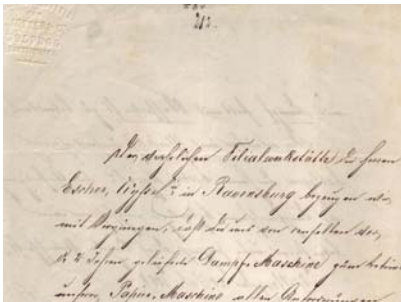 212.
Der verehrlichen Filialwerkstätte der Herren
Escher, Wyss & in Ravensburg bezeugen wir
mit Vergnügen, daß die uns von derselben vor
2 Jahren gelieferte Dampf-Maschine zum Betrieb
unserer Papier-Maschine allen Anforderungen